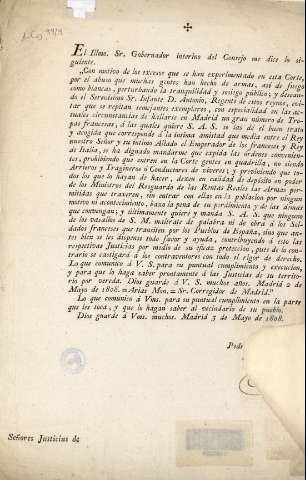 El Illmo. Sr. Gobernador interino del Consejo me dice lo si-
guiente.
„Con motivo de los excesos que se han experimentado en esta Corte,
por el abuso que muchas gentes han hecho de armas, así de fuego
como blancas, perturbando la tranquilidad y sosiego público; y deseando
el Serenísimo Sr. Infante D. Antonio, Regente de estos reynos, evi-
tar que se repitan semejantes exemplares, con especialidad en las ac-
tuales circunstancias de hallarse en Madrid un gran número de Tro-
pas francesas, á las quales quiere S. A. S. se les dé el buen trato
y acogida que corresponde á la íntima amistad que media entre el Rey
nuestro Señor y su íntimo Aliado el Emperador de los franceses y Rey
de Italia, se ha dignado mandarme que expida las órdenes convenien-
tes, prohibiendo que entren en la Corte gentes en quadrilla, no siendo
Arrieros y Tragineros ó Conductores de víveres; y previniendo que to-
dos los que lo hayan de hacer, dexen en calidad de depósito en poder
de los Ministros del Resguardo de las Rentas Reales las Armas per-
mitidas que traxeren, sin entrar con ellas en la poblacion por ningun
motivo ni acontecimiento, baxo la pena de su perdimiento y de las demas
que convengan; y últimamente quiere y manda S. A. S. que ninguno
de los vasallos de S. M. maltrate de palabra ni de obra á los Sol-
dados franceses que transiten por los Pueblos de España, sino que an-
tes bien se les dispense todo favor y ayuda, contribuyendo á esto las
respectivas Justicias por medio de su eficaz proteccion, pues de lo con-
trario se castigará á los contraventores con todo el rigor de derecho.
Lo que comunico á V. S. para su puntual cumplimiento y execucion,
y para que lo haga saber prontamente á las Justicias de su territo-
rio por vereda. Dios guarde á V. S. muchos años. Madrid 2 de
Mayo de 1808. = Arias Mon. = Sr. Corregidor de Madrid."
Lo que comunico á Vms. para su puntual cumplimiento en la parte
que les toca, y que lo hagan saber al vecindario de su pueblo.
Dios guarde á Vms. muchos. Madrid 3 de Mayo de 1808.
Señores Justicias de